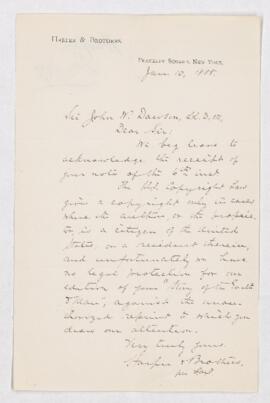 HARPER & BROTHERS.
FRANKLIN SQUARE, NEW YORK.
Jan. 10, 1888.
Sir John W. Dawson, LL.D. etc.
Dear Sir:
We beg leave to
acknowledge the receipt of
your note of the 6th inst.
The U.S. Copyright Law
gives a copyright only in cases
where the author or the proprie-
tor is a citizen of the United
States or a resident therein,
and unfortunately we have
no legal protection for our
edition of your "Story of the Earth
& Man", against the unau-
thorized reprint to which you
draw our attention.
Very truly yours,
Harper & Brothers,
per